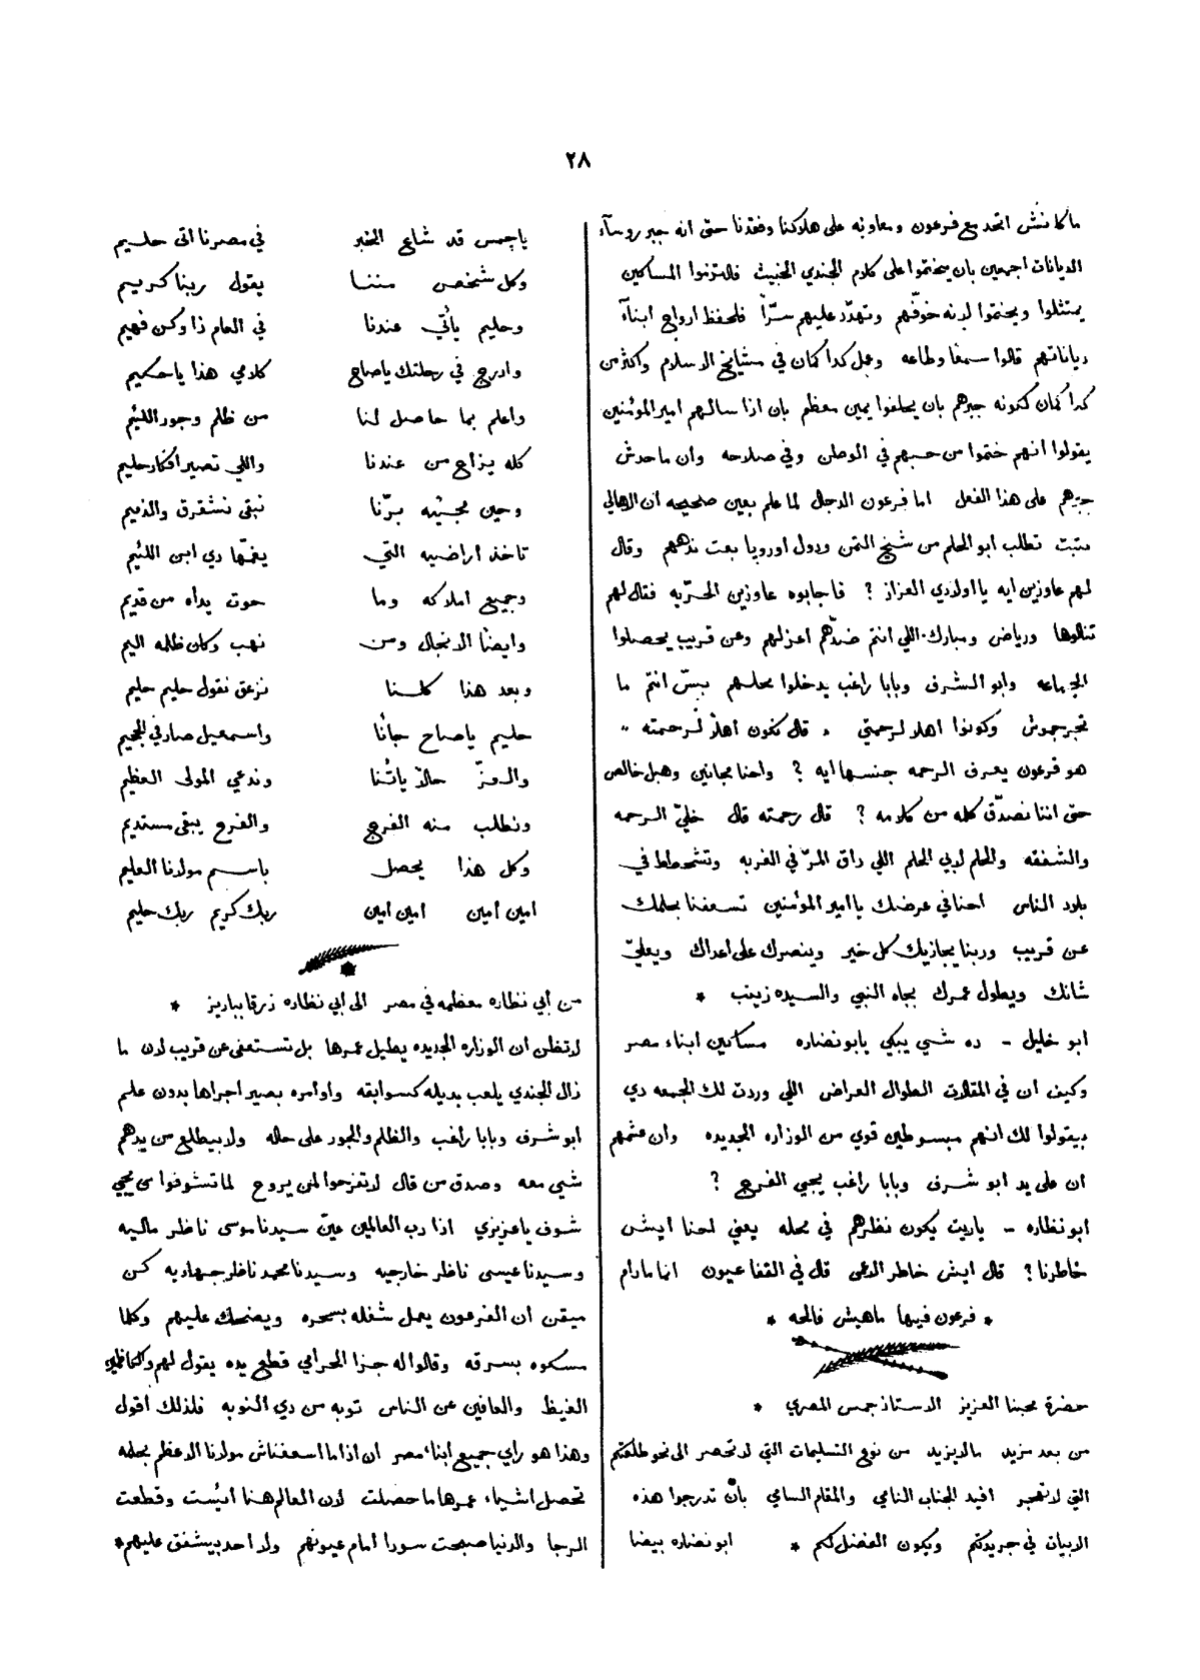 ٢٨
ماكانش اتحد مع فرعون ومعاونه على هلاكنا وفقدنا حتى انه جبر روسآء
الديانات اجمعين بان يختموا على كلام الجندي الخبيث فالتزموا المساكين
يمتثلوا ويختموا لانه خوّفهم وتهدّد عليهم سرّاً فلحفظ ارواح ابنآء
دياناتهم قالوا سمعًا وطاعه وعمل كدا كمان في مشايخ الاسلام واكثر من
كدا كمان لكونه جبرهم بان يحلفوا يمين معظم بان اذا سالهم امير المؤمنين
يقولوا انهم ختموا من حبهم في الوطن وفي صلاحه وان ماحدش
جبرهم على هذا الفعل اما فرعون الدجال لما علم بعين صحيحه ان الاهالي
تطلب ابو الحلم من شيخ التمن ودول اوروبا بعت ندههم وقال
لهم عاوزين ايه يا اولادي العزاز ؟ فاجابوه عاوزين الحرّيه فقال لهم
تنالوها ورياض ومبارك اللي انتم ضدّهم اعزلهم وعن قريب يحصلوا
الجماعه وابو الشرف وبابا راغب يدخلوا محلهم بسّ انتم ما
تجرجروش وكونوا اهلا لرحمتي . قال نكون اهلاً لرحمته ..
هو فرعون يعرف الرحمه جنسها ايه ؟ واحنا مجانين وهبل خالص
حتى اننا نصدّق كله من كلامه ؟ قال رحمته قال خليّ الرحمه
والشفقه والحلم لابي الحلم اللي داق المرّ في الغربه وتشحطط في
بلاد الناس احنا في عرضك يا امير المؤمنين تسعفنا بحلمك
عن قريب وربنا يجازيك كل خير وينصرك على اعداك ويعليّ
شانك ويطول عمرك بجاه النبي والسيده زينب *
ابو خليل - ده شي يبكي يابو نضاره مساكين ابناء مصر
وكيف ان في المقالات الطوال العراض اللي وردت لك الجمعه دي
بيقولوا لك انهم مبسوطين قوي من الوزاره الجديده وان عشمهم
ان على يد ابو شرف وبابا راغب يجي الفرج ؟
ابو نظاره - ياريت يكون نظرهم في محله يعني احنا ايش
خاطرنا ؟ قال ايش خاطر الاعمى قال في القفا عيون انما مادام
* فرعون فيها ماهيش فالحه *
حضرة محبنا العزيز الاستاذ جمس المصري *
من بعد مزيد مالايزيد من نوع التسليمات التي لا تحصر الى نحو طلعتكم
التي لا تهجر افيد الجناب النامي والمقام السامي بان تدرجوا هذه
الابيات في جريدتكم ويكون الفضل لكم * ابو نضاره بيضا
ياجمس قد شاع الخبر في مصرنا اتى حليم
وكل شخص مننا يقول ربنا كريم
وحليم يأتي عندنا في العام ذا وكن فهيم
وادرج في رحلتك ياصاح كلامي هذا ياحكيم
واعلم بما حاصل لنا من ظلم وجور اللئيم
كله يزاح من عندنا واللي تصير افكار حليم
وحين مجيئه برّنا نبقى نشقرق والذميم
تاخذ اراضيه التي يغمّها دي ابن اللئيم
وجميع املاكه وما حوت يداه من قديم
وايضًا الانجال ومن نهب وكان ظلمه اليم
وبعد هذا كلنا نزعق نقول حليم حليم
حليم ياصاح جانا واسمعيل صار في الجحيم
والعزّ حالاً يأتنا وندعي المولى العظيم
ونطلب منه الفرج والفرح يبقى مستديم
وكل هذا يحصل باسم مولانا العليم
امين أمين امين امين ربك كريم ربك حليم
من أبي نظاره معظمه في مصر الى أبي نظاره زرقا بباريز *
لا تظن ان الوزاره الجديده يطيل عمرها بل تستعفى عن قريب لان ما
زال الجندي يلعب بديله كسوابقه واوامره بصير اجراها بدون علم
ابو شرف وبابا راغب والظلم والجور على حاله ولا بيطلع من يدهم
شي معه وصدق من قال لا تفرحوا لمن يروح لما تشوفوا من يجي
شوف ياعزيزي اذا رب العالمين عيّن سيدنا موسى ناظر ماليه
وسيدنا عيسى ناظر خارجيه وسيدنا محمد ناظر جهاديه كن
ميقن ان الفرعون يعمل شغله بسحره ويضحك عليهم وكلما
مسكوه بسرقه وقالوا له جزا الحرامي قطع يده يقول لهم والكاظمين
الغيظ والعافين عن الناس توبه من دي النوبه فلذلك أقول
وهذا هو رأي جميع ابناء مصر ان اذا ما اسعفناش مولانا الاعظم بحلمه
تحصل اشياء عمرها ما حصلت لان العالم هنا ائيست وقطعت
الرجا والدنيا صبحت سودا امام عيونهم ولا احد بيشفق عليهم *